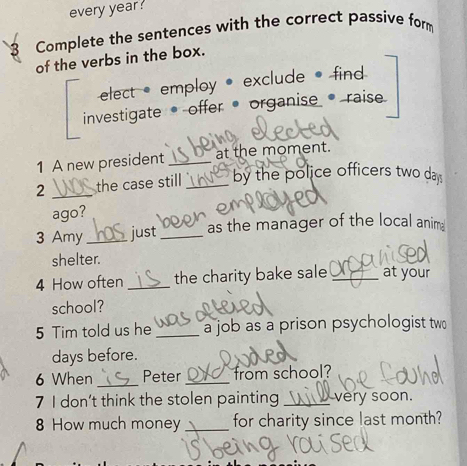 every year?
3 Complete the sentences with the correct passive form
of the verbs in the box.
elect • employ • exclude • find
investigate • offer • organise • raise
is being elected
1 A new president ______ at the moment.
2 was the case still investigated by the police officers two days
ago?
been employed
3 Amy has just ______ as the manager of the local anima
shelter.
4 How often is the charity bake sale organised at your
school?
was offered
5 Tim told us he ______ a job as a prison psychologist two
days before.
6 When is Peter excluded from school?
will be found
7 I don't think the stolen painting ______ very soon.
8 How much money ______ for charity since last month?
is being raised